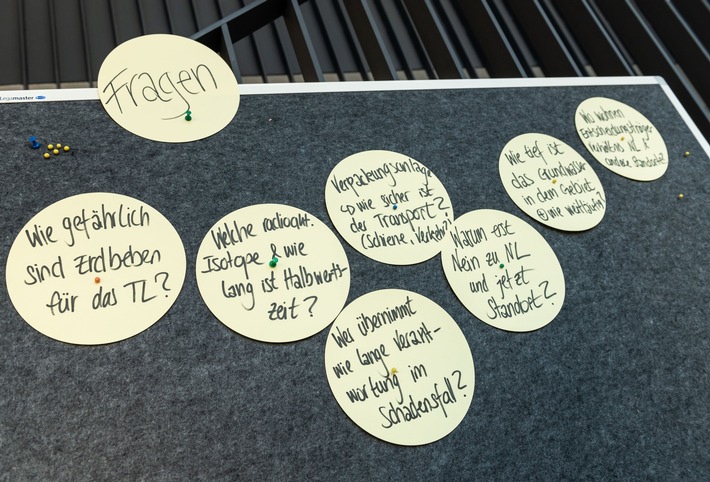 Legamaster
Fragen
Wie gefährlich
sind Erdbeben
für das TL?
Welche radioakt.
Isotope & wie
lang ist Halbwerts-
zeit?
Verpackungsanlage
so wie sicher ist
der Transport?
(Schiene, Verkehr?)
Wer übernimmt
wie lange Verant-
wortung im
Schadensfall?
Warum erst
Nein zu NL
und jetzt
Standort?
Wie tief ist
das Grundwasser
in dem Gebiet
Wo wohnen
Entscheidungsträger
Verhältnis NL &
andere Standorte?